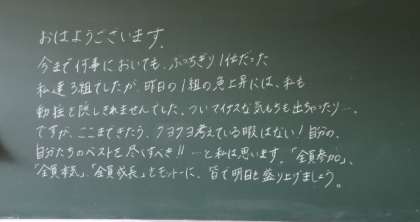 おはようございます。
今まで何事においても、ぶっちぎり1位だった
私達3組でしたが、昨日の1組の急上昇には、私も
動揺を隠しきれませんでした。ついマイナスな気もちも出ちゃったり…。
ですが、ここまできたら、クヨクヨ考えている暇はない！自分の、
自分たちのベストを尽くすべき!! …と私は思います。「全員参加」、
「全員本気」、「全員成長」をモットーに、皆で明日を盛り上げましょう。